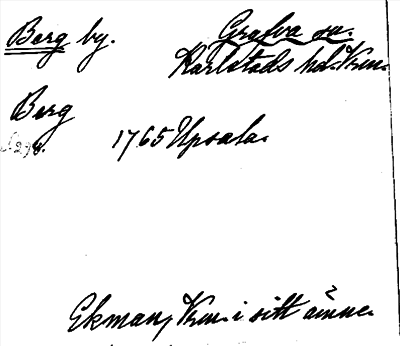 Berg by. Grava sn.
Karlstads hd. Vrm.
Berg
1765 Upsala.
Ekman, Vrm. i sitt ämne.